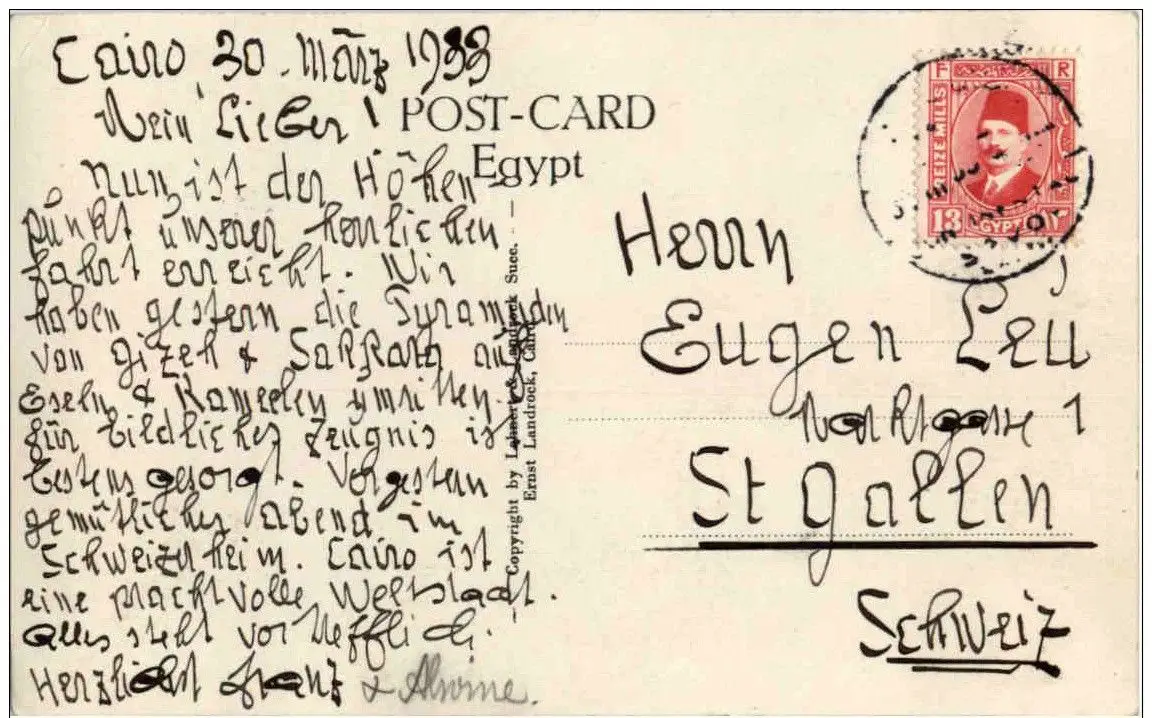 Cairo, 30. März 1933
Mein Lieber!
POST-CARD
Egypt
Nun ist der Höhen-
punkt unserer herrlichen
Fahrt erreicht. Wir
haben gestern die Pyramiden
von Gizeh & Sakkara auf
Eseln & Kameelen umritten.
für bildliches Zeugnis ist
bestens gesorgt. Vorgestern
gemütlicher Abend im
Schweizerheim. Cairo ist
eine prachtvolle Weltstadt.
Alles steht vortrefflich.
Herzlichst Franz & Alwine.
Copyright by Lehnert & Landrock Succ.
Ernst Landrock, Cairo
F R
TREIZE MILLS
13
EGYPT
Herrn
Eugen Leu
Marktgasse 1
St Gallen
Schweiz